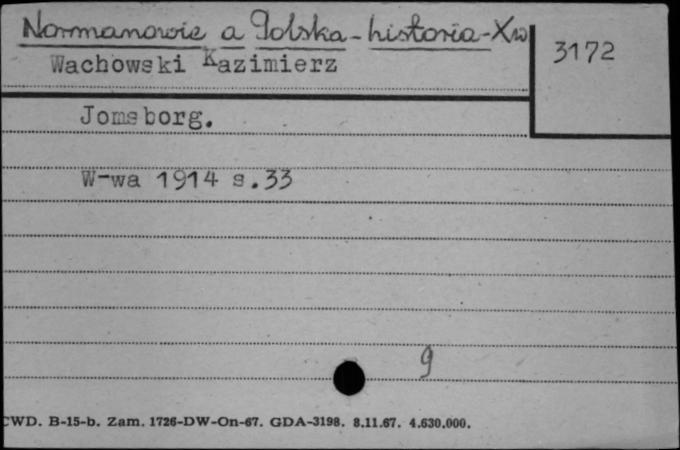 Normanowie a Polska - historia - Xw
3172
Wachowski Kazimierz
Jomsborg.
W-wa 1914 s.33
9
CWD. B-15-b. Zam. 1726-DW-On-67. GDA-3198. 8.11.67. 4.630.000.